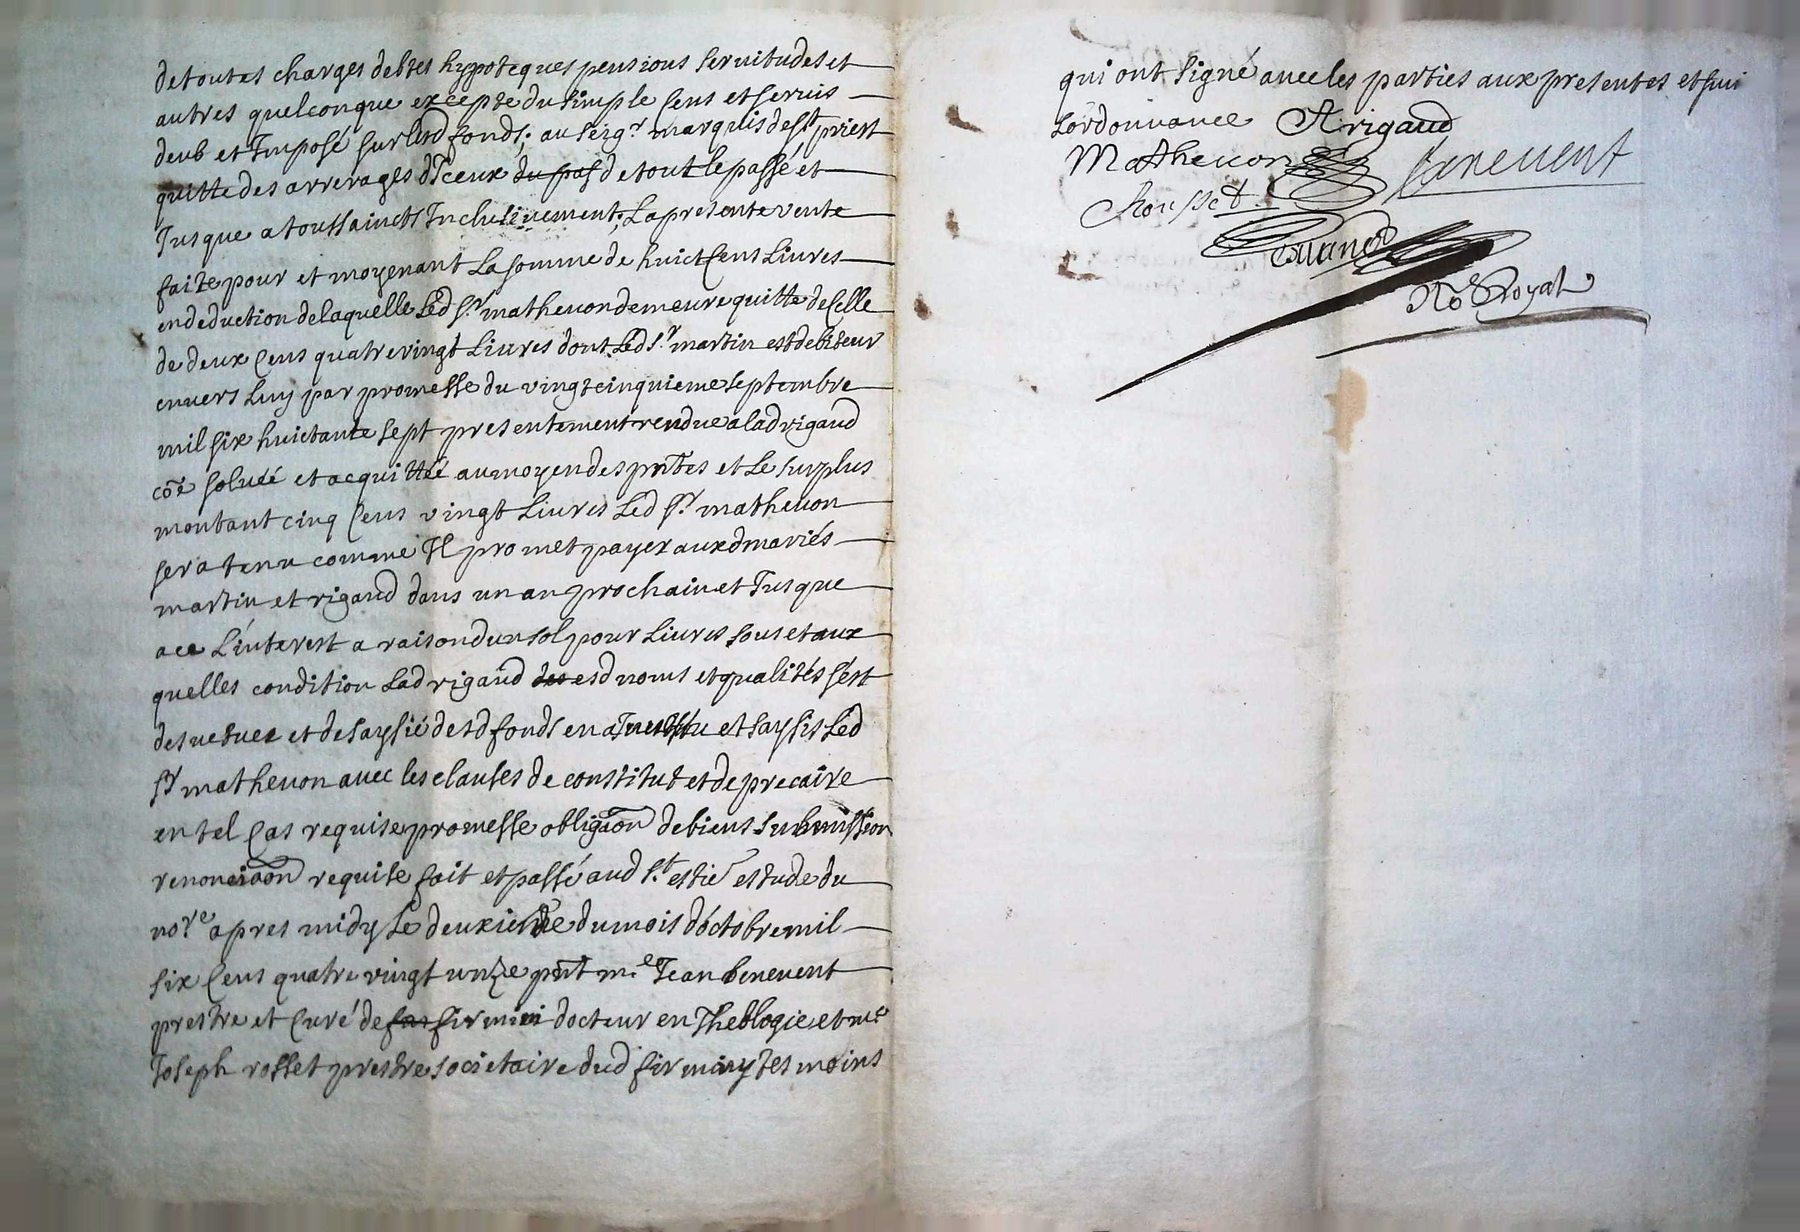 de toutes charges debtes hypoteques pensions servitudes et
autres quelconque excepte du simple Cens et servis
deub et Imposé sur lesd fonds; au seigr marquis de st priest
quitte des arrerages d'Iceux du pas de tout le passé et
Jusque a toussaincts Inclusivement; La presente vente
faite pour et moyenant La somme de huict Cens Livres
en deduction de laquelle Led sr. mathevon demeure quitte de Celle
de deux Cens quatre vingt Livres dont Led sr. martin est debiteur
envers Luy par promesse du vingt cinquieme septembre
mil six huictante sept presentement rendue a lad rigaud
coe solvéé et acquittéé au moyen des pntes et Le surplus
montant cinq Cens vingt Livres Led sr. mathevon
sera tenu comme Il promet payer auxd mariés
martin et rigaud dans un an prochain et Jusque
ace L'interest a raison d'un sol pour Livres sous et aux
quelles condition Lad rigaud des esd noms et qualités s'est
desvetues et desaysié desd fonds en a Investu et saysis Led
sr mathevon avec les clauses de constitut et de precaire
en tel Cas requise promesse obligaon de biens submission
renonciaon requise fait et passé aud st. estie estude du
nore apres midy Le deuxieme du mois d'octobre mil
six Cens quatre vingt unze pnt me Jean benevent
prestre et Curé de firmini docteur en Theologie et me
Joseph rosset prestre societaire dud firminy tesmoins
qui ont signé avec les parties aux presentes et suiv
L'ordonnance A rigaud
Mathevon benevent
Rousset
No Royal